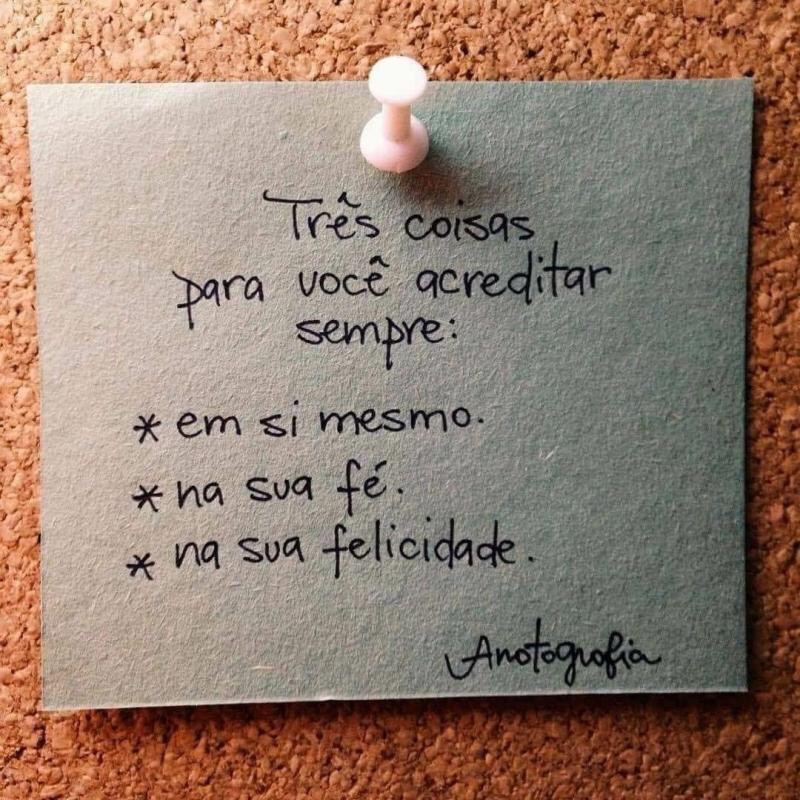 Três coisas
para você acreditar
sempre:
* em si mesmo.
* na sua fé.
* na sua felicidade.
Anotografia